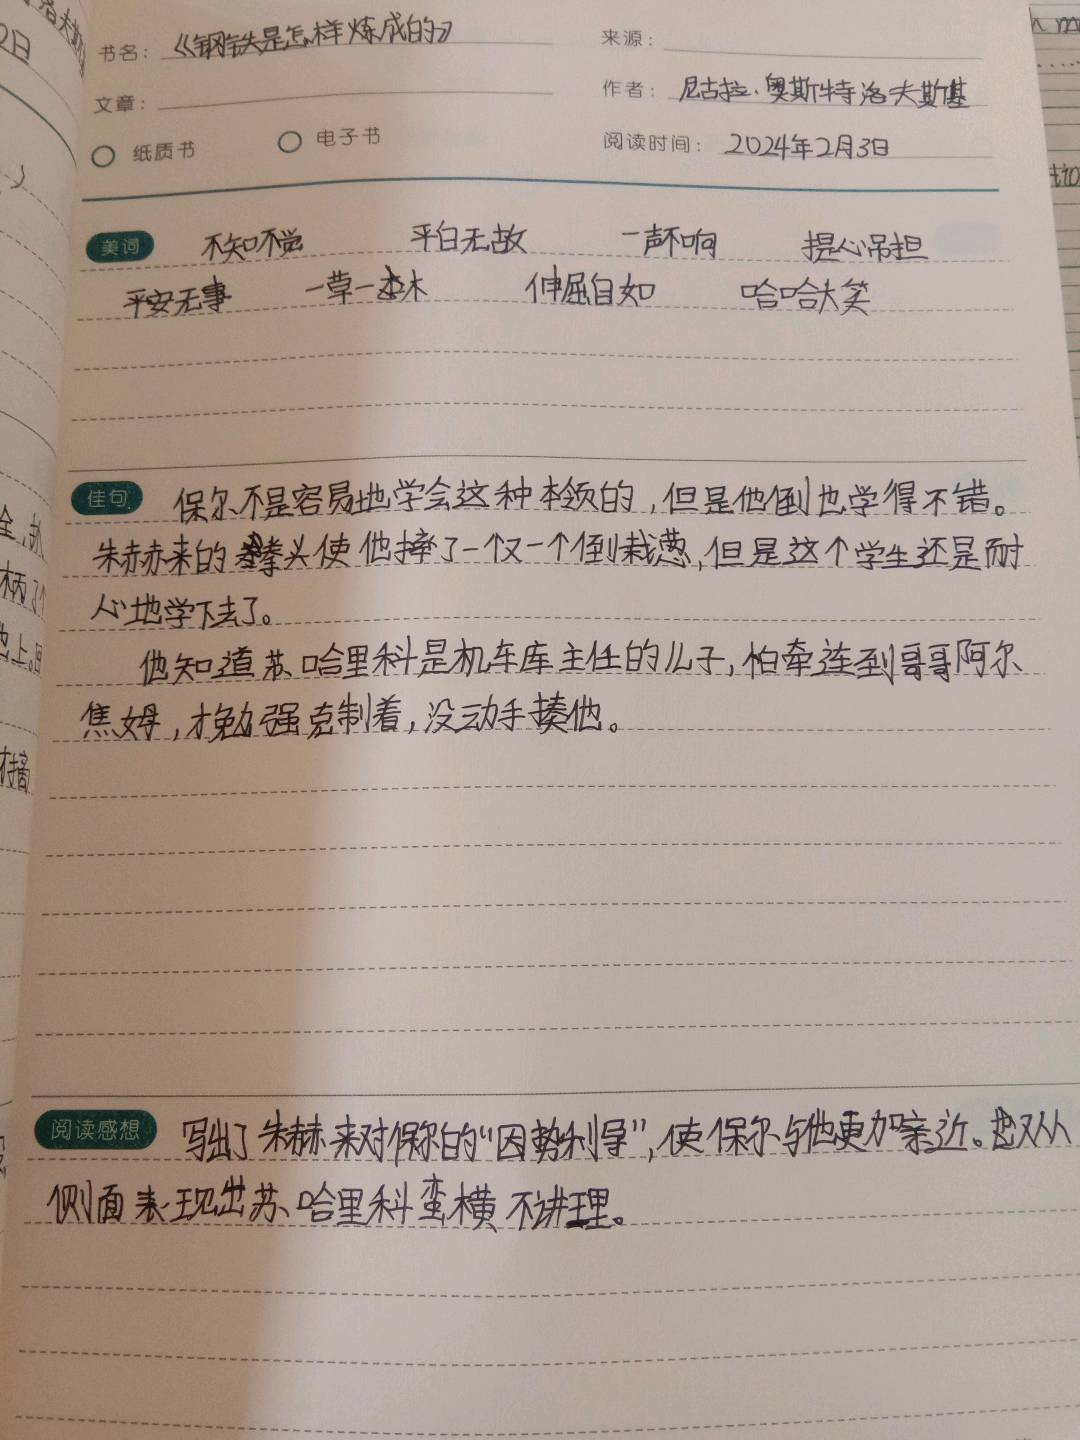 书名：《钢铁是怎样炼成的》 来源：
文章： 作者：尼古拉·奥斯特洛夫斯基
纸质书 电子书 阅读时间：2024年2月3日
美词 不知不觉 平白无故 一声不响 提心吊担
平安无事 一草一木 伸屈自如 哈哈大笑
佳句 保尔不是容易地学会这种本领的，但是他倒也学得不错。
朱赫来的拳头使他摔了一个又一个倒栽葱，但是这个学生还是耐
心地学下去了。
他知道苏哈里科是机车库主任的儿子，怕牵连到哥哥阿尔
焦姆，才勉强克制着，没动手揍他。
阅读感想 写出了朱赫来对保尔的“因势利导”，使保尔与他更加亲近。也又从
侧面表现出苏哈里科蛮横不讲理。
洛夫斯
2日
全，
柄了个
也上。